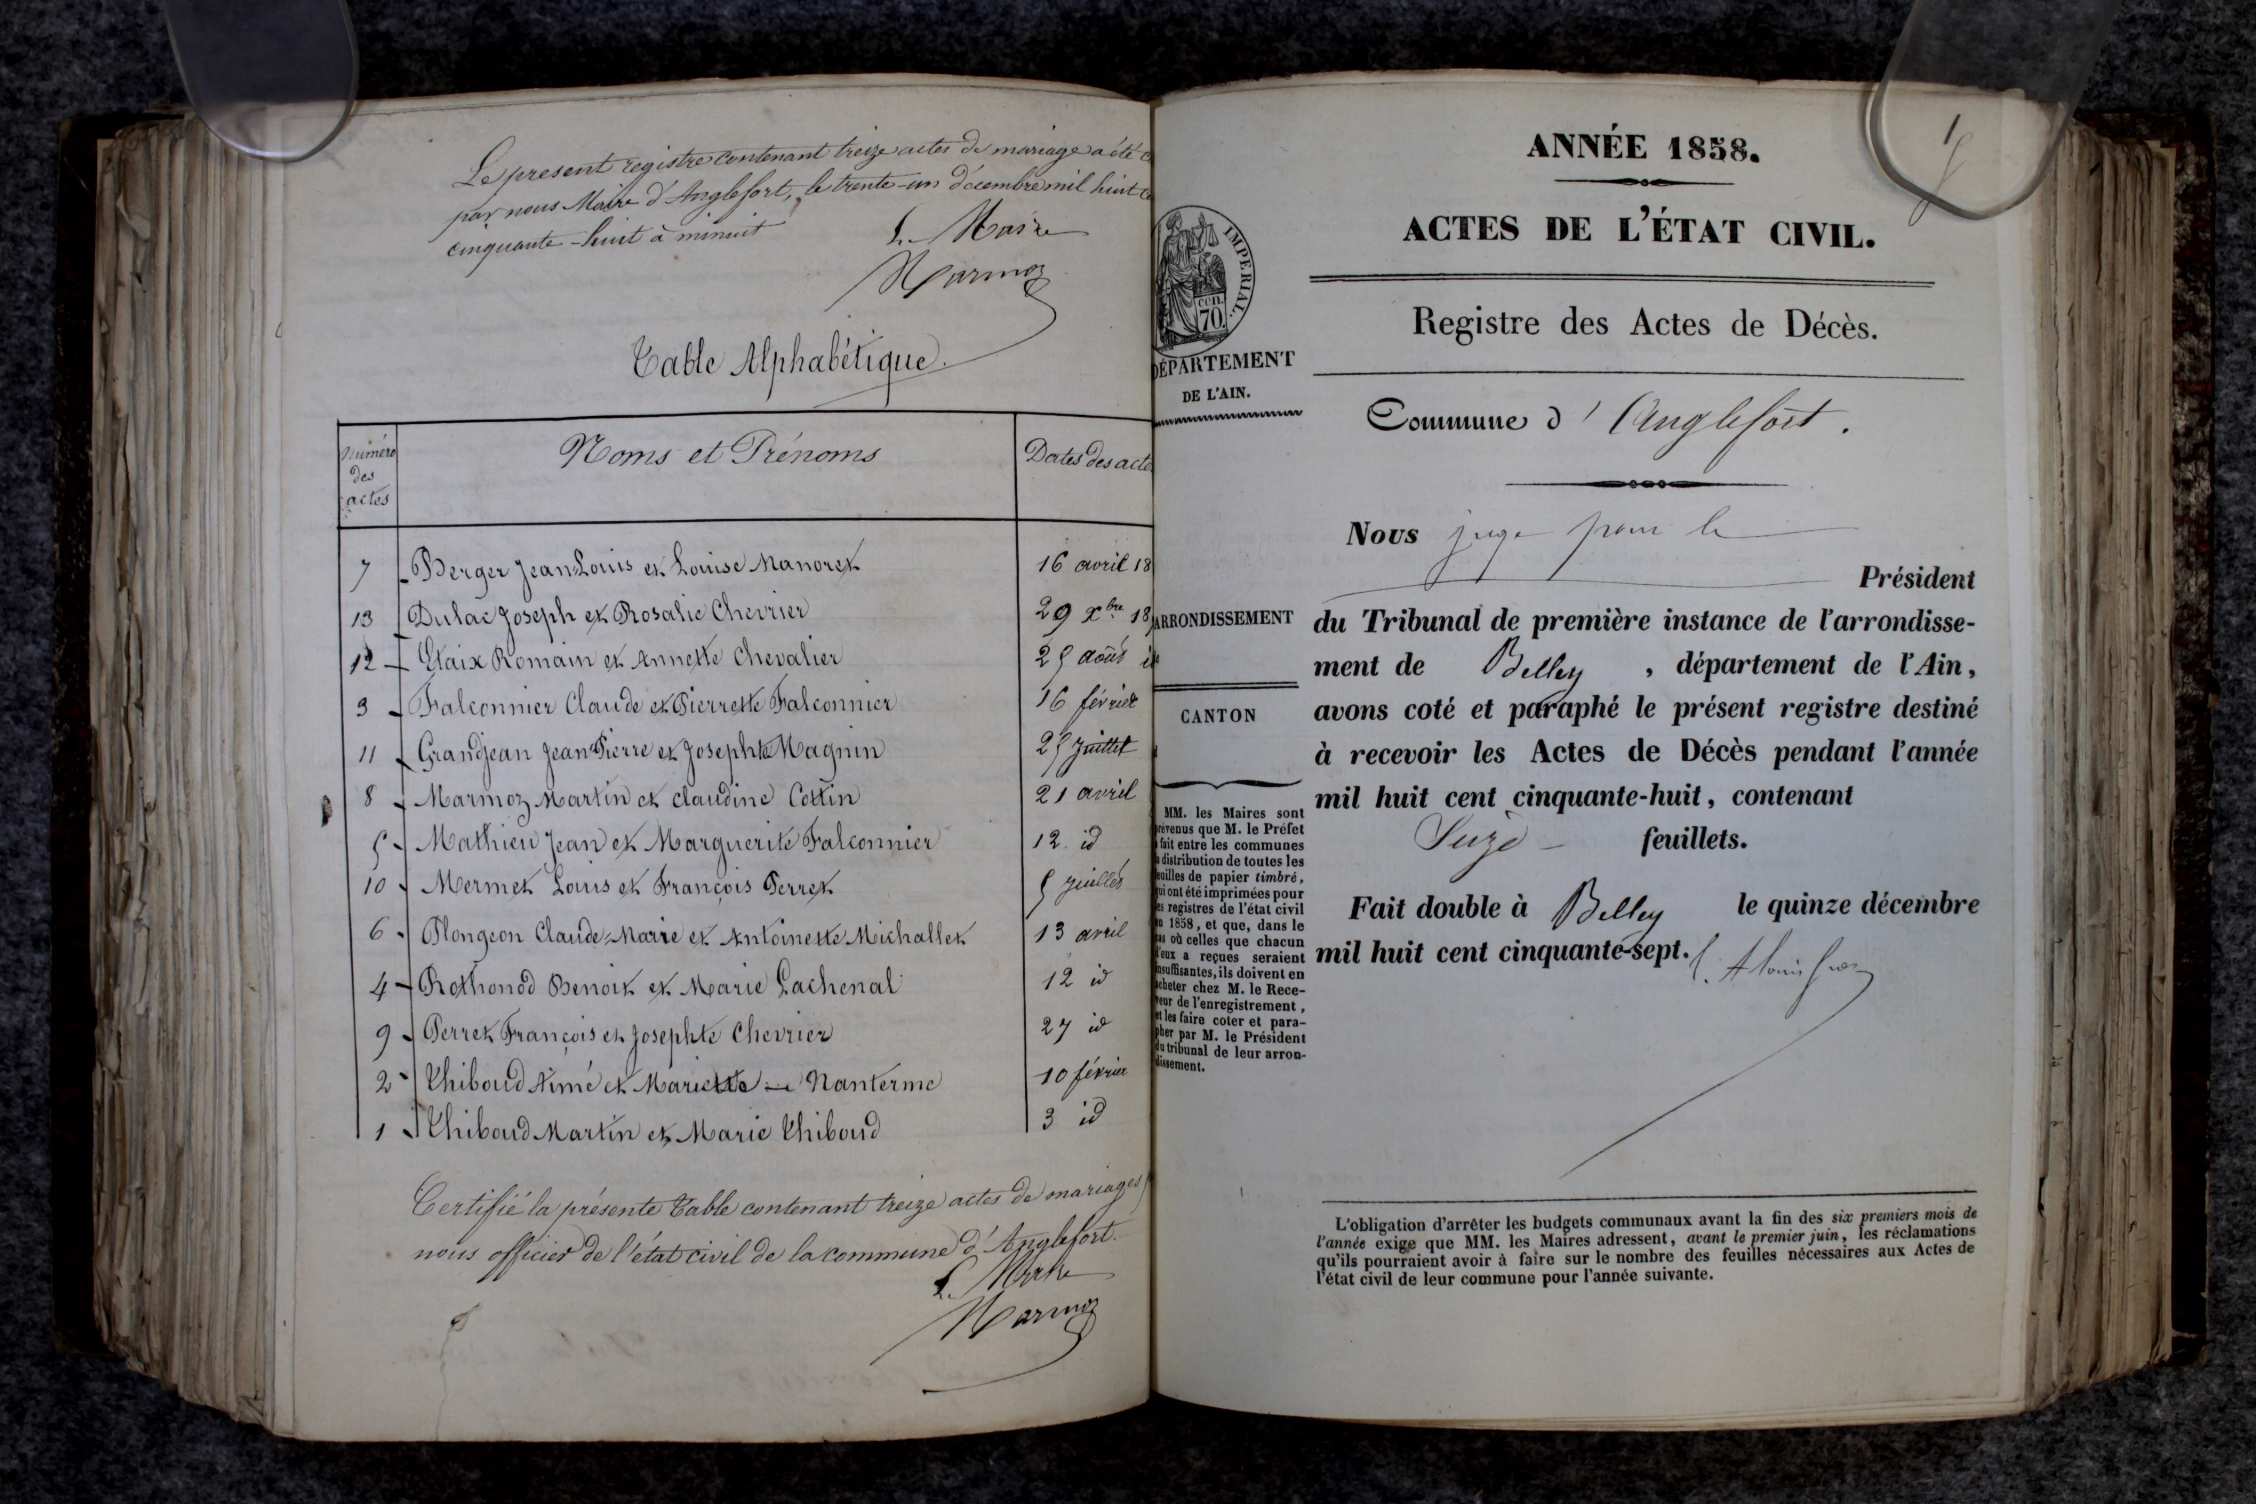 Le présent registre contenant treize actes de mariage a été
par nous Maire d'Anglefort, le trente-un décembre mil huit
cinquante-huit à minuit
Le Maire
Marmoz
Table Alphabétique.
Numéro des actes
Noms et Prénoms
Dates des acte
7 Berger Jean-Louis et Louise Manoret 16 avril 18
13 Dulac Joseph et Rosalie Chevrier 29 Xbre 18
12 Etaix Romain et Annette Chevalier 25 août id
3 Falconnier Claude et Pierrette Falconnier 16 février
11 Grandjean Jean Pierre et Josephte Magnin 25 Juillet
8 Marmoz Martin et Claudine Cottin 21 avril
5 Mathieu Jean et Marguerite Falconnier 12 id
10 Mermet Louis et François Perret 5 juillet
6 Plongeon Claude-Marie et Antoinette Michallet 13 avril
4 Rethonod Benoit et Marie Lachenal 12 id
9 Perret François et Josephte Chevrier 27 id
2 Thiboud Aimé et Mariette Nanterme 10 février
1 Thiboud Martin et Marie Thiboud 3 id
Certifié la présente Table contenant treize actes de mariages
nous officier de l'état civil de la commune d'Anglefort.
Le Maire
Marmoz
1
ANNÉE 1858.
ACTES DE L'ÉTAT CIVIL.
IMPERIAL.
cen.
70.
Registre des Actes de Décès.
DÉPARTEMENT
DE L'AIN.
Commune d'Anglefort.
Nous juge pour le
Président
ARRONDISSEMENT
du Tribunal de première instance de l'arrondisse-
ment de Belley, département de l'Ain,
avons coté et paraphé le présent registre destiné
CANTON
à recevoir les Actes de Décès pendant l'année
mil huit cent cinquante-huit, contenant
Seize feuillets.
Fait double à Belley le quinze décembre
mil huit cent cinquante-sept.
MM. les Maires sont
prévenus que M. le Préfet
fait entre les communes
la distribution de toutes les
feuilles de papier timbré,
qui ont été imprimées pour
les registres de l'état civil
en 1858, et que, dans le
cas où celles que chacun
d'eux a reçues seraient
insuffisantes, ils doivent en
acheter chez M. le Rece-
veur de l'enregistrement,
et les faire coter et para-
pher par M. le Président
du tribunal de leur arron-
dissement.
L'obligation d'arrêter les budgets communaux avant la fin des six premiers mois de
l'année exige que MM. les Maires adressent, avant le premier juin, les réclamations
qu'ils pourraient avoir à faire sur le nombre des feuilles nécessaires aux Actes de
l'état civil de leur commune pour l'année suivante.